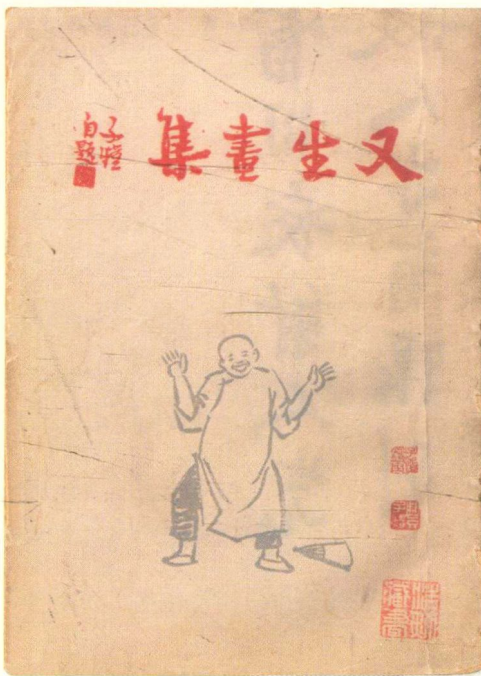 又生畫集
子愷
自題